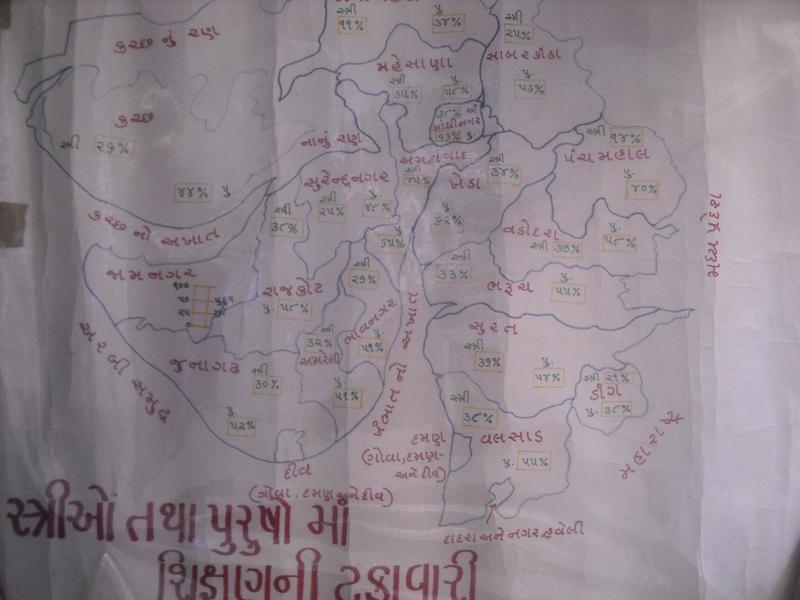 સ્ત્રી
૧૧%
પુ.
૩૪%
સ્ત્રી
૨૫%
કચ્છ નું રણ
સાબરકાંઠા
પુ.
૫૩%
મહેસાણા
સ્ત્રી
૩૫%
પુ.
૫૮%
ગાંધીનગર
કચ્છ
સ્ત્રી ૨૭%
૪૪% પુ.
નાનું રણ
અમદાવાદ
સ્ત્રી
૪૫%
૬૫%
સ્ત્રી
૧૪%
પંચમહાલ
પુ.
૪૦%
સુરેન્દ્રનગર
સ્ત્રી
૨૫%
પુ.
૪૮%
ખેડા
સ્ત્રી
૩૪%
પુ.
૬૨%
કચ્છ નો અખાત
સ્ત્રી
૩૮%
વડોદરા
સ્ત્રી ૩૭%
પુ.
૫૮%
મધ્ય પ્રદેશ
જામનગર
૧૦૦
૨૫
૦
રાજકોટ
પુ. ૫૮%
સ્ત્રી
૨૭%
ભાવનગર
પુ.
૫૧%
સ્ત્રી
૩૩%
ભરૂચ
પુ.
૫૫%
અરબી સમુદ્ર
જુનાગઢ
સ્ત્રી
૩૦%
પુ.
૫૨%
સ્ત્રી
૩૨%
અમરેલી
પુ.
૫૧%
ખંભાતનો અખાત
સુરત
સ્ત્રી
૩૭%
પુ.
૫૪%
સ્ત્રી ૨૧%
ડાંગ
પુ. ૩૮%
સ્ત્રી
૩૮%
વલસાડ
પુ. ૫૫%
મહારાષ્ટ્ર
દમણ
(ગોવા, દમણ-
અને દીવ)
દીવ
(ગોવા, દમણ અને દીવ)
દાદરા અને નગર હવેલી
સ્ત્રીઓ તથા પુરુષો માં
શિક્ષણની ટકાવારી